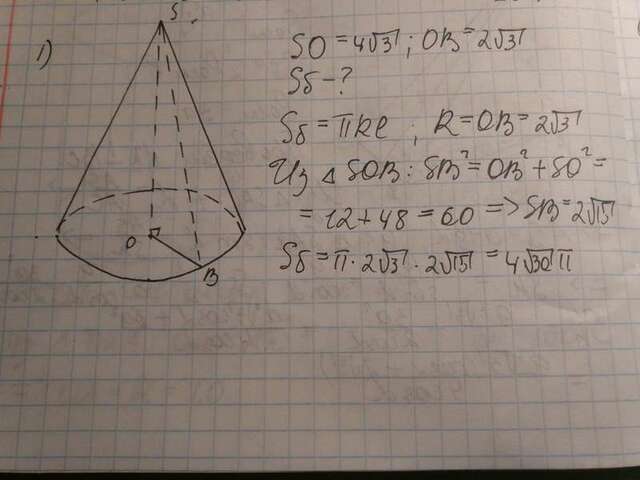 1)
S
O
B
SO = 4√3 ; OB = 2√3
Sб - ?
Sб = πRl ; R = OB = 2√3
Из △ SOB : SB² = OB² + SO² =
= 12 + 48 = 60 => SB = 2√15
Sб = π · 2√3 · 2√15 = 4√30 π